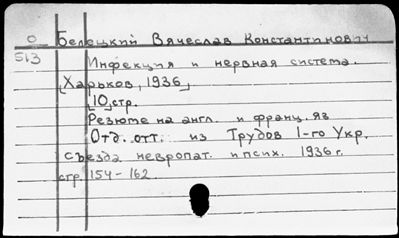 О Белецкий Вячеслав Константинович
513 Инфекция и нервная система.
[Харьков, 1936]
[10] стр.
Резюме на англ. и франц. яз
Отд. отт. из Трудов 1-го Укр.
съезда невропат. и псих. 1936 г.
стр. 154-162.